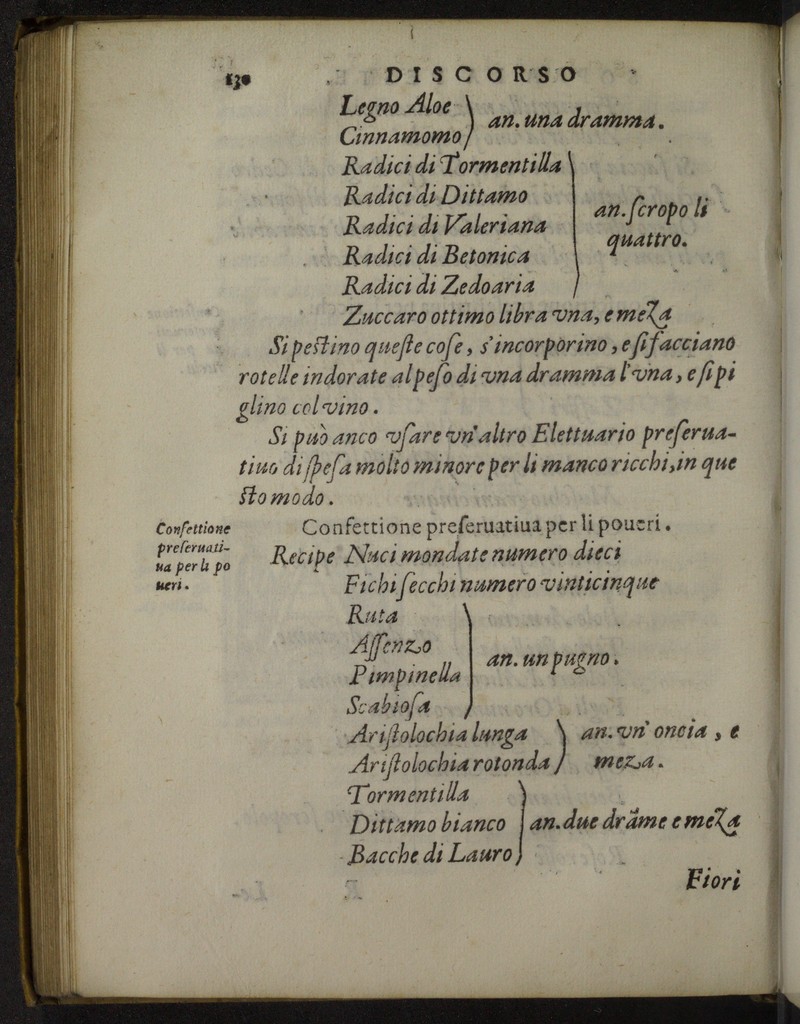 130 DISCORSO
Legno Aloe
Cinnamomo } an. una dramma.
Radici di Tormentilla
Radici di Dittamo
Radici di Valeriana
Radici di Betonica
Radici di Zedoaria } an. ſcropo li
quattro.
Zuccaro ottimo libra vna, e meza
Si peſtino queſte coſe, s'incorporino, e ſi facciano
rotelle indorate al peſo di vna dramma l'vna, e ſi pi
glino col vino.
Si può anco vſare vn'altro Elettuario preſerua-
tiuo di ſpeſa molto minore per li manco ricchi, in que
ſto modo.
Confettione
preſeruati-
ua per li po
ueri.
Confettione preſeruatiua per li poueri.
Recipe Nuci mondate numero dieci
Fichi ſecchi numero vinticinque
Ruta
Aſſenzo
Pimpinella
Scabioſa } an. un pugno.
Ariſtolochia lunga
Ariſtolochia rotonda } an. vn' oncia, e
meza.
Tormentilla
Dittamo bianco
Bacche di Lauro } an. due drãme e meza
Fiori